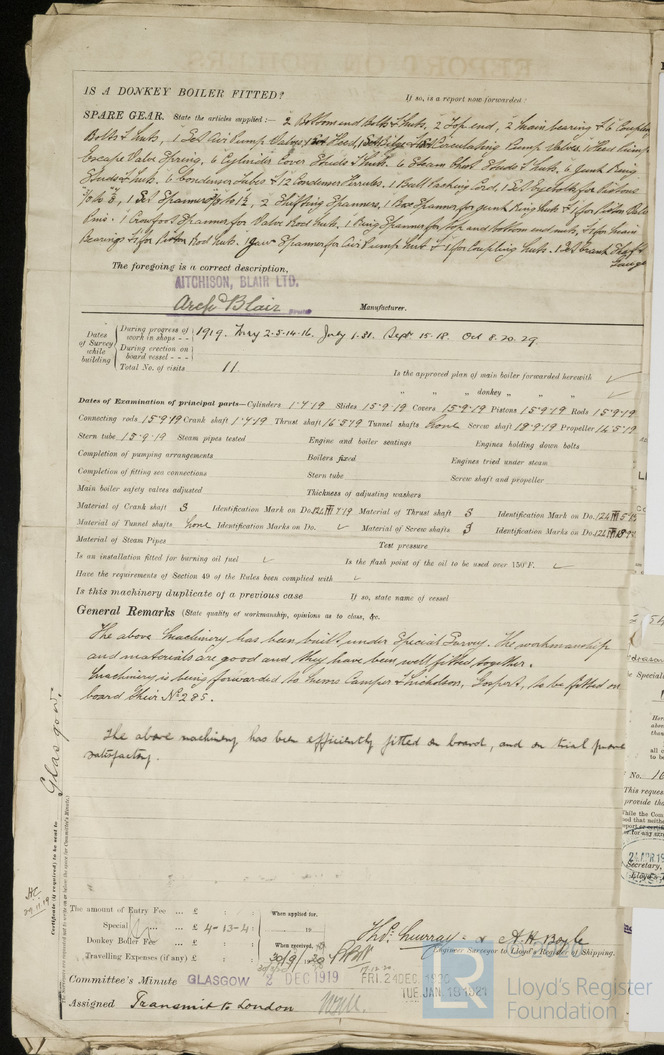 IS A DONKEY BOILER FITTED? If so, is a report now forwarded?
SPARE GEAR. State the articles supplied:— 2 Bottom end Bolts & Nuts, 2 Top end, 2 Main bearing & 6 Coupling
Bolts & Nuts, 1 Set Air Pump Valves, Circulating Pump Valves,
Escape Valve Spring, 6 Cylinder Cover Studs & Nuts. 6 Steam Chest Studs & Nuts. 6 Junk Ring
Studs & Nuts. 6 Condenser Tubes & 12 Condenser Ferrules. 1 Bolt Packing Cord, 1 Set for Pistons
1 Set Spanners to 1½, 2 Shifting Spanners, 1 Box Spanner for Junk Ring Nuts & 1 for Piston
Pins. 1 Crowfoot Spanner for Valve Rod Nuts, 1 Ring Spanner for top and bottom end nuts, & 1 for Main
Bearings & 1 for Piston Rod Nuts. 1 Jaw Spanner for Air Pump Nut & 1 for Coupling Nuts. 1 Set Crank
The foregoing is a correct description,
AITCHISON, BLAIR LTD.
Archd Blair Manufacturer.
Dates of Survey while building
During progress of work in shops - - 1919. May 2-5-14-16. July 1-31. Sept 15-18. Oct 8-20-29
During erection on board vessel - - -
Total No. of visits 11.
Is the approved plan of main boiler forwarded herewith ✓
" " " donkey " " ✓
Dates of Examination of principal parts—Cylinders 1-7-19 Slides 15-9-19 Covers 15-9-19 Pistons 15-9-19 Rods 15-9-19
Connecting rods 15-9-19 Crank shaft 1-7-19 Thrust shaft 16-5-19 Tunnel shafts none Screw shaft 18-9-19 Propeller 16-5-19
Stern tube 15-9-19 Steam pipes tested Engine and boiler seatings Engines holding down bolts
Completion of pumping arrangements Boilers fixed Engines tried under steam
Completion of fitting sea connections Stern tube Screw shaft and propeller
Main boiler safety valves adjusted Thickness of adjusting washers
Material of Crank shaft S Identification Mark on Do. Material of Thrust shaft S Identification Mark on Do.
Material of Tunnel shafts none Identification Marks on Do. ✓ Material of Screw shafts S Identification Marks on Do.
Material of Steam Pipes Test pressure
Is an installation fitted for burning oil fuel ✓ Is the flash point of the oil to be used over 150°F. ✓
Have the requirements of Section 49 of the Rules been complied with ✓
Is this machinery duplicate of a previous case If so, state name of vessel
General Remarks (State quality of workmanship, opinions as to class, &c.
The above Machinery has been built under Special Survey. The workmanship
and materials are good and they have been well fitted together.
Machinery is being forwarded to Messrs Camper & Nicholson, Gosport, to be fitted on
board their No 285.
The above machinery has been efficiently fitted on board, and on trial prove
satisfactory.
Glasgow.
Certificate (if required) to be sent to
The amount of Entry Fee ... £ : : When applied for,
Special ... £ 4-13-4: 19
Donkey Boiler Fee ... £ : : When received,
Travelling Expenses (if any) £ : :
Thos. Murray & A. H. Boyle
Engineer Surveyor to Lloyd's Register of Shipping.
Committee's Minute GLASGOW 2 DEC 1919 FRI. 24 DEC. 1920
TUE. JAN. 18 1921
Assigned Transmit to London
Lloyd's Register
Foundation